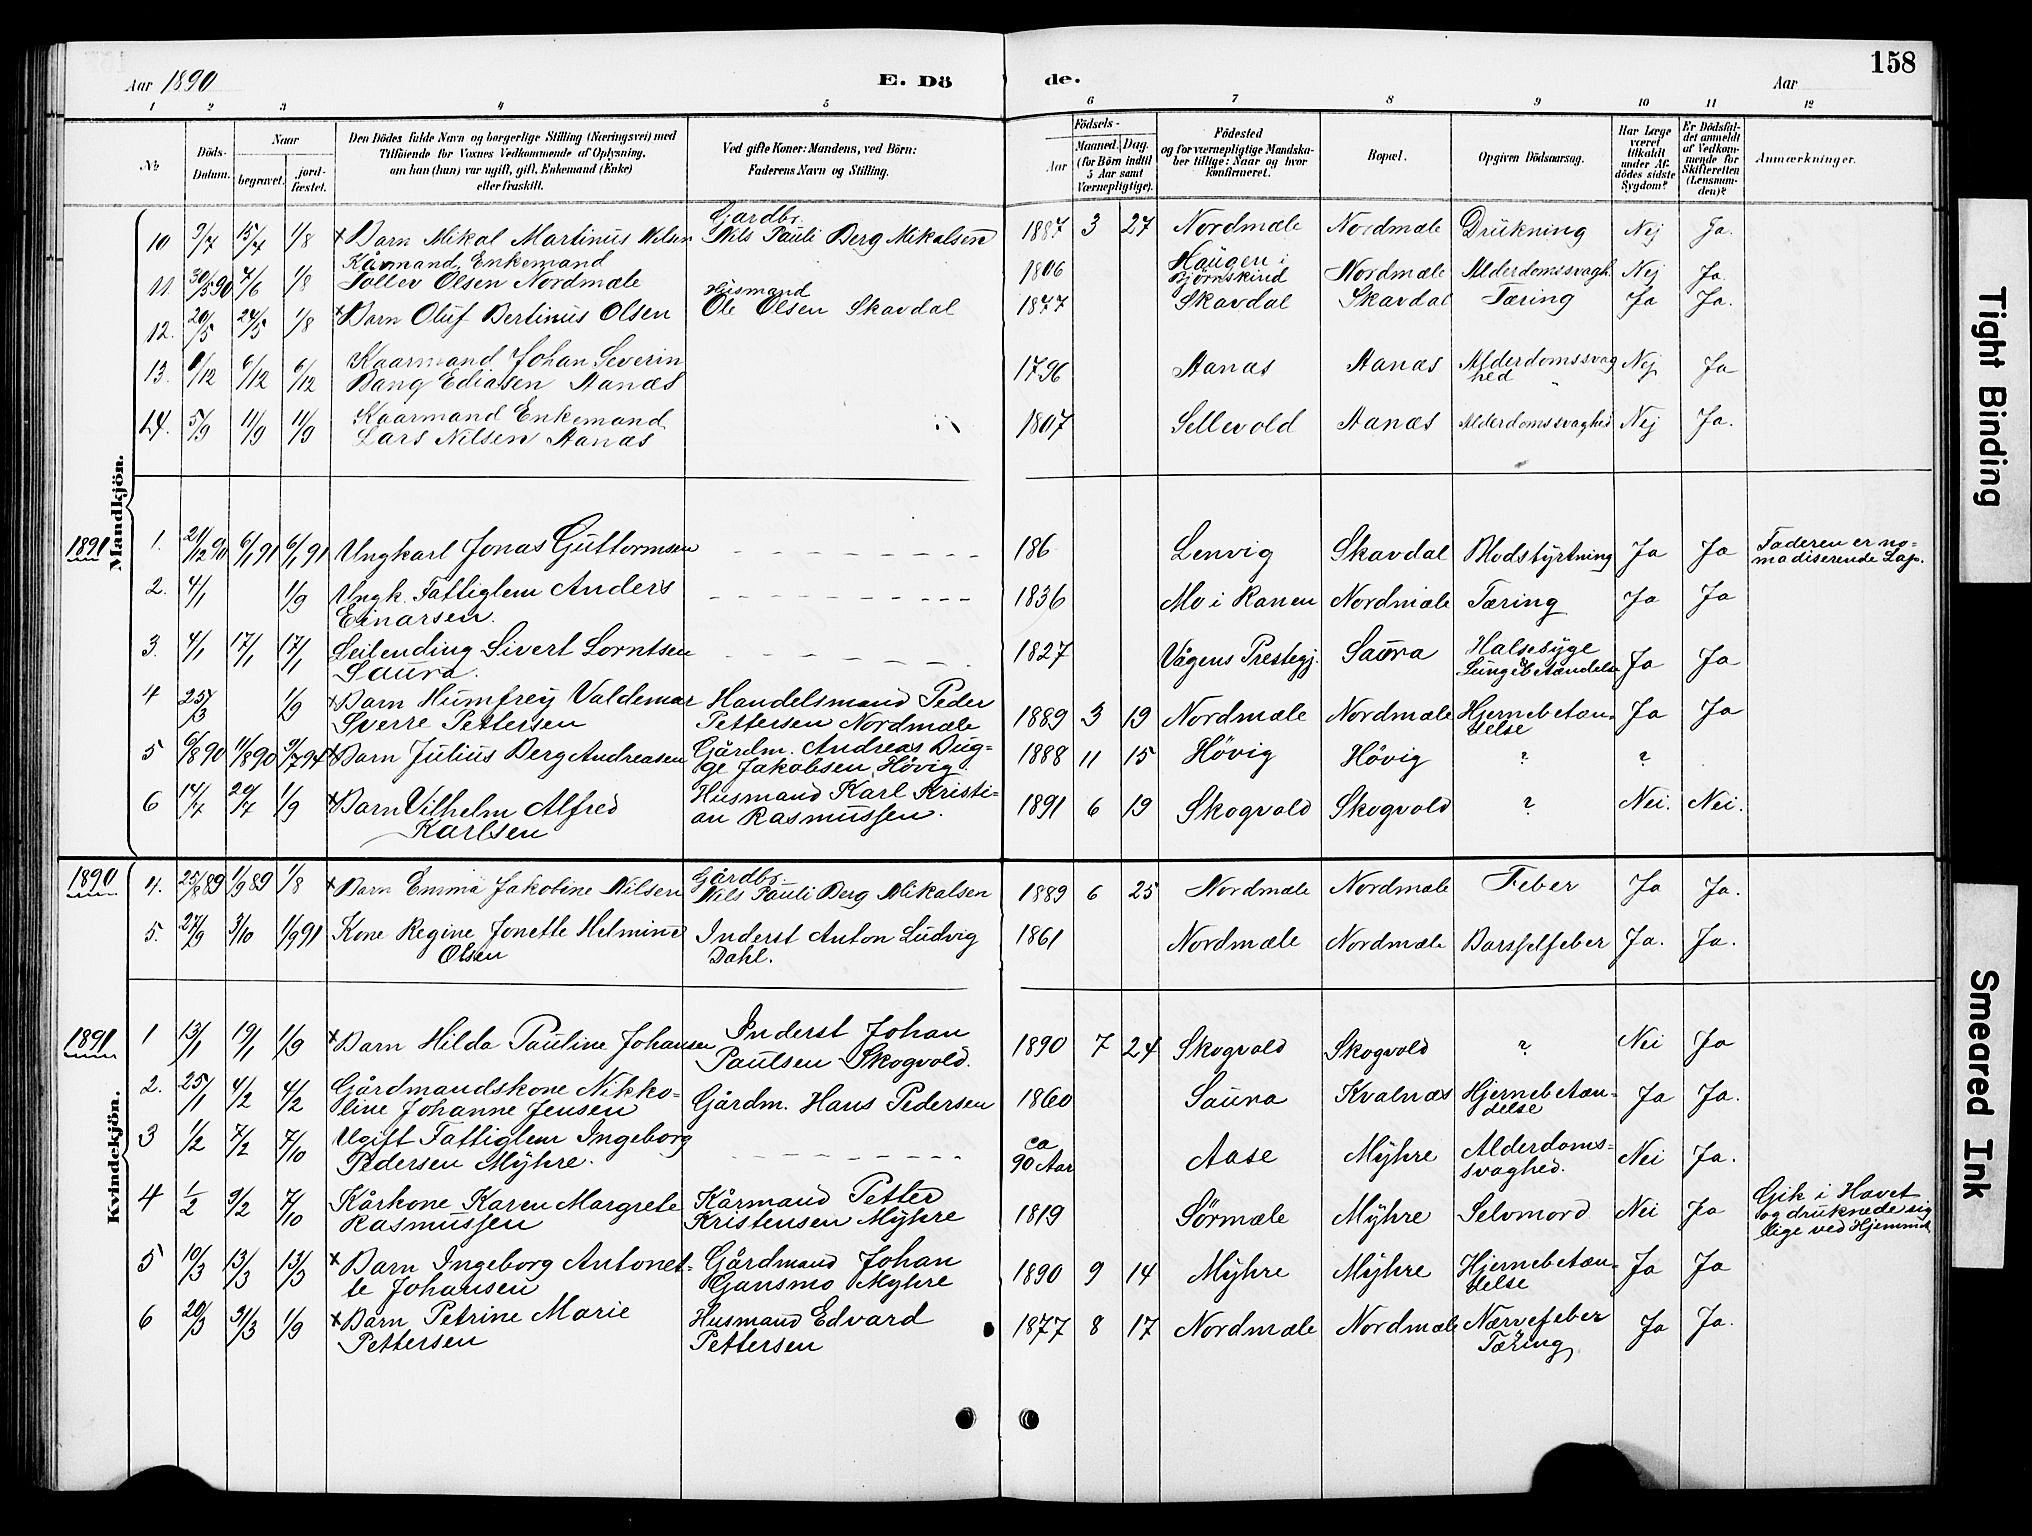 158
Aar 1890
E. Dö
de.
Aar
1 2 3 4 5 6 7 8 9 10 11 12
No
Döds-
Datum.
Naar
begravet.
jord-
fæstet.
Den Dödes fulde Navn og borgerlige Stilling (Næringsvei) med
Tilföiende for Voxnes Vedkommende af Oplysning,
om han (hun) var ugift, gift, Enkemand (Enke)
eller fraskilt.
Ved gifte Koner: Mandens, ved Börn:
Faderens Navn og Stilling.
Födsels-
Aar
Maaned. Dag.
(for Börn indtil
5 Aar samt
Værnepligtige).
Födested
og for værnepligtige Mandska-
ber tillige: Naar og hvor
konfirmeret.
Bopæl.
Opgiven Dödsaarsag.
Har Læge
været
tilkaldt
under Af-
dödes sidste
Sygdom?
Er Dödsfal-
det anmeldt
af Vedkom-
mende for
Skifteretten
(Lensman-
den)?
Anmærkninger.
Mandkjön.
10 9/7 15/7 1/8 + Barn Mikal Martinus Nilsen Gardbr. Nils Pauli Berg Mikalsen 1887 3 27 Nordmæle Nordmæle Drukning Nej Ja.
11. 30/5 90 7/6 1/8 Kårmand Enkemand
Tollev Olsen Nordmæle 1806 Haugen i
Bjørnskind Nordmæle Alderdomssvagh. Nej Ja.
12. 20/5 24/5 1/8 + Barn Oluf Bertinus Olsen Husmand
Ole Olsen Skavdal 1877 Skavdal Skavdal Tæring Ja Ja.
13. /12 6/12 6/12 Kaarmand Johan Severin
Bang Ediasen Aanæs 1796 Aanæs Aanæs Alderdomssvag
hed Nej Ja
14. 5/9 11/9 11/9 Kaarmand Enkemand
Lars Nilsen Aanæs 1807 Sellevold Aanæs Alderdomssvaghed Nej Ja.
1891
1. 21/12 90 6/1 91 6/1 91 Ungkarl Jonas Guttormsen 186 Lenvig Skavdal Blodstyrtning Ja Ja Faderen er no-
madiserende Lap.
2. 4/1 1/9 Ungk. Fattiglem Anders
Einarsen. 1836 Mo i Ranen Nordmæle Tæring Ja Ja
3. 4/1 17/1 17/1 Leilending Sivert Lorntsen
Saura. 1827 Vågens Prestegj. Saura Halsesyge
Lungebetændelse Ja Ja
4 25/3 1/9 + Barn Humfrey Valdemar
Sverre Pettersen Handelsmand Peder
Pettersen Nordmæle 1889 3 19 Nordmæle Nordmæle Hjernebetæn-
delse Ja Ja
5 6/8 90 11/8 90 9/7 94 + Barn Julius Berg Andreasen Gårdm. Andreas Bug-
ge Jakobsen, Høvig. 1888 11 15 Høvig Høvig ? ?
6 14/7 20/7 1/9 + Barn Vilhelm Alfred
Karlsen Husmand Karl Kristi-
an Rasmussen. 1891 6 19 Skogvold Skogvold ? Nei. Nei.
1890
Kvindekjön.
4. 25/8 89 1/9 89 1/8 + Barn Emma Jakobine Nilsen Gårdbr.
Nils Pauli Berg Mikalsen 1889 6 25 Nordmæle Nordmæle Feber Ja Ja.
5. 27/9 3/10 1/9 91 Kone Regine Jonette Helmine
Olsen Inderst Anton Ludvig
Dahl. 1861 Nordmæle Nordmæle Barselfeber Ja. Ja.
1891
1 13/1 19/1 1/9 + Barn Hilda Pauline Johansen Inderst Johan
Paulsen Skogvold. 1890 7 24 Skogvold Skogvold ? Nei Ja
2. 25/1 4/2 4/2 Gårdmandskone Nikko-
line Johanne Jensen Gårdm. Hans Pedersen 1860 Saura Kvalnæs Hjernebetæn-
delse Ja Ja.
3 1/2 7/2 7/10 Ugift Fattiglem Ingeborg
Pedersen Myhre. ca
90 Aar Aase Myhre Alderdoms-
svaghed. Nei Ja.
4 1/2 9/2 7/10 Kårkone Karen Margrete
Rasmussen Kårmand Petter
Kristensen Myhre 1819 Sørmæle Myhre Selvmord Nei Ja Gik i Havet
og druknede sig
lige ved Hjemmet
5 10/3 13/3 13/3 + Barn Ingeborg Antonet-
te Johansen Gårdmand Johan
Gansmo Myhre 1890 9 14 Myhre Myhre Hjernebetæn-
delse Ja Ja
6 20/3 31/3 1/9 + Barn Petrine Marie
Pettersen Husmand Edvard
Pettersen 1877 8 17 Nordmæle Nordmæle Nærvefeber
Tæring Ja Ja.
Tight Binding
Smeared Ink